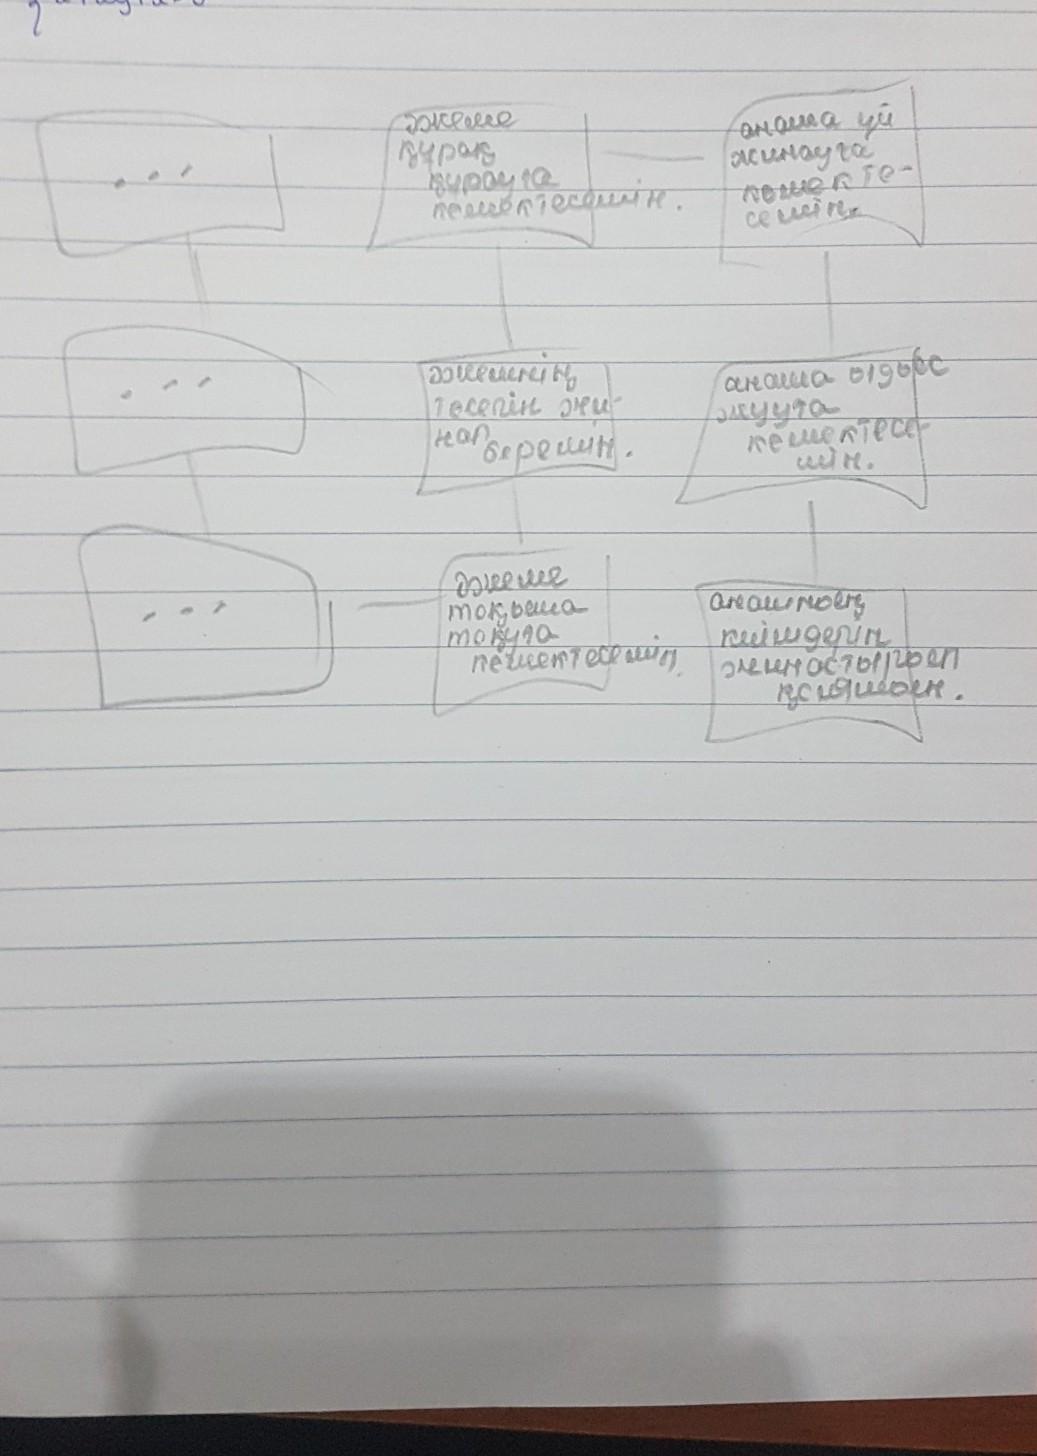 ...
әжеме
құрақ
құрауға
көмектесемін.
анама үй
жинауға
көмекте-
семін.
...
әжемнің
төсегін жи-
нап
беремін.
анама ыдыс
жууға
көмектесе-
мін.
...
әжеме
тоқыма
тоқуға
көмектесемін.
анамның
киімдерін
жинастырып
қоямын.